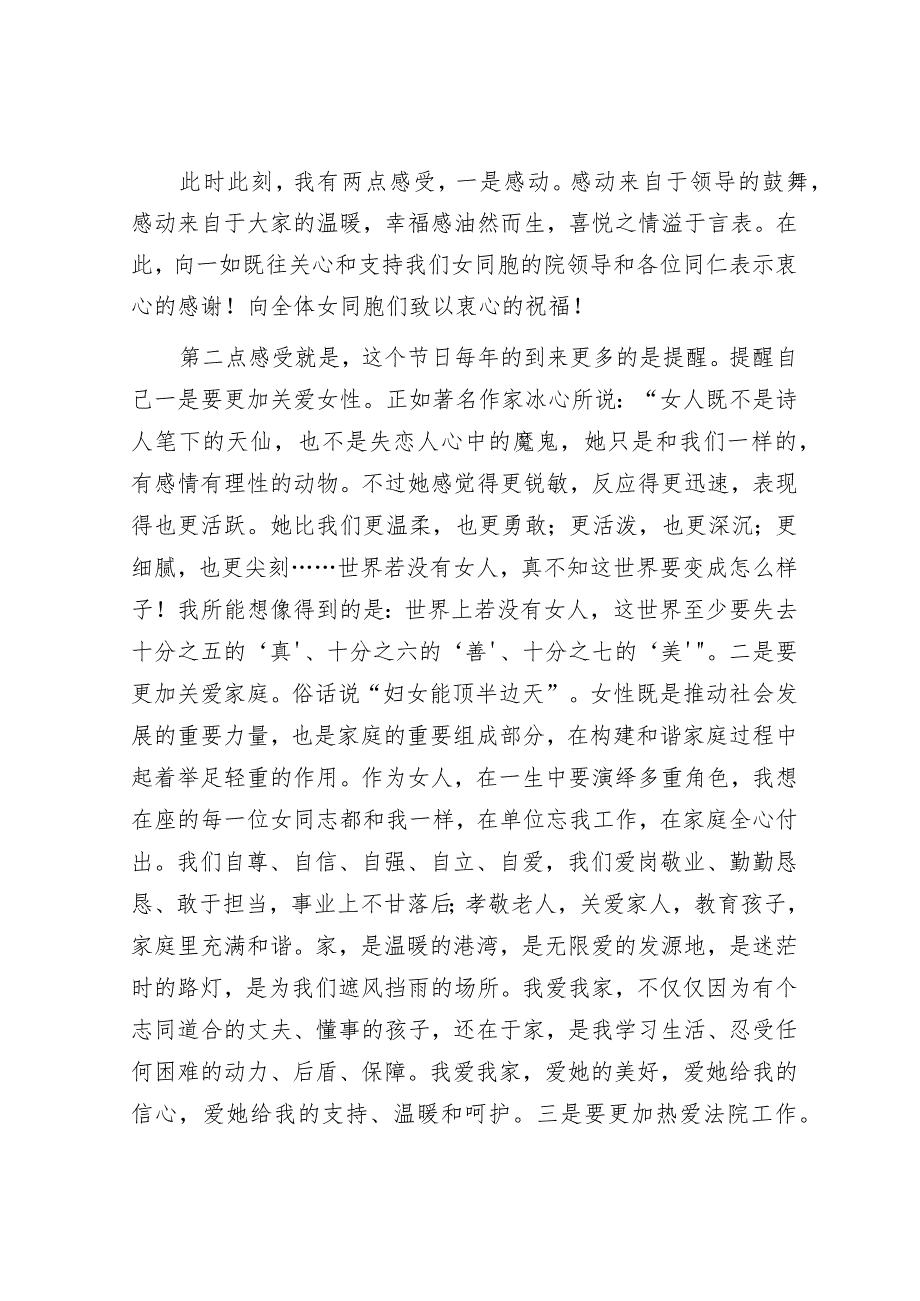 此时此刻，我有两点感受，一是感动。感动来自于领导的鼓舞，
感动来自于大家的温暖，幸福感油然而生，喜悦之情溢于言表。在
此，向一如既往关心和支持我们女同胞的院领导和各位同仁表示衷
心的感谢！向全体女同胞们致以衷心的祝福！
第二点感受就是，这个节日每年的到来更多的是提醒。提醒自
己一是要更加关爱女性。正如著名作家冰心所说：“女人既不是诗
人笔下的天仙，也不是失恋人心中的魔鬼，她只是和我们一样的，
有感情有理性的动物。不过她感觉得更锐敏，反应得更迅速，表现
得也更活跃。她比我们更温柔，也更勇敢；更活泼，也更深沉；更
细腻，也更尖刻……世界若没有女人，真不知这世界要变成怎么样
子！我所能想像得到的是：世界上若没有女人，这世界至少要失去
十分之五的‘真'、十分之六的‘善'、十分之七的‘美'"。二是要
更加关爱家庭。俗话说“妇女能顶半边天”。女性既是推动社会发
展的重要力量，也是家庭的重要组成部分，在构建和谐家庭过程中
起着举足轻重的作用。作为女人，在一生中要演绎多重角色，我想
在座的每一位女同志都和我一样，在单位忘我工作，在家庭全心付
出。我们自尊、自信、自强、自立、自爱，我们爱岗敬业、勤勤恳
恳、敢于担当，事业上不甘落后；孝敬老人，关爱家人，教育孩子，
家庭里充满和谐。家，是温暖的港湾，是无限爱的发源地，是迷茫
时的路灯，是为我们遮风挡雨的场所。我爱我家，不仅仅因为有个
志同道合的丈夫、懂事的孩子，还在于家，是我学习生活、忍受任
何困难的动力、后盾、保障。我爱我家，爱她的美好，爱她给我的
信心，爱她给我的支持、温暖和呵护。三是要更加热爱法院工作。